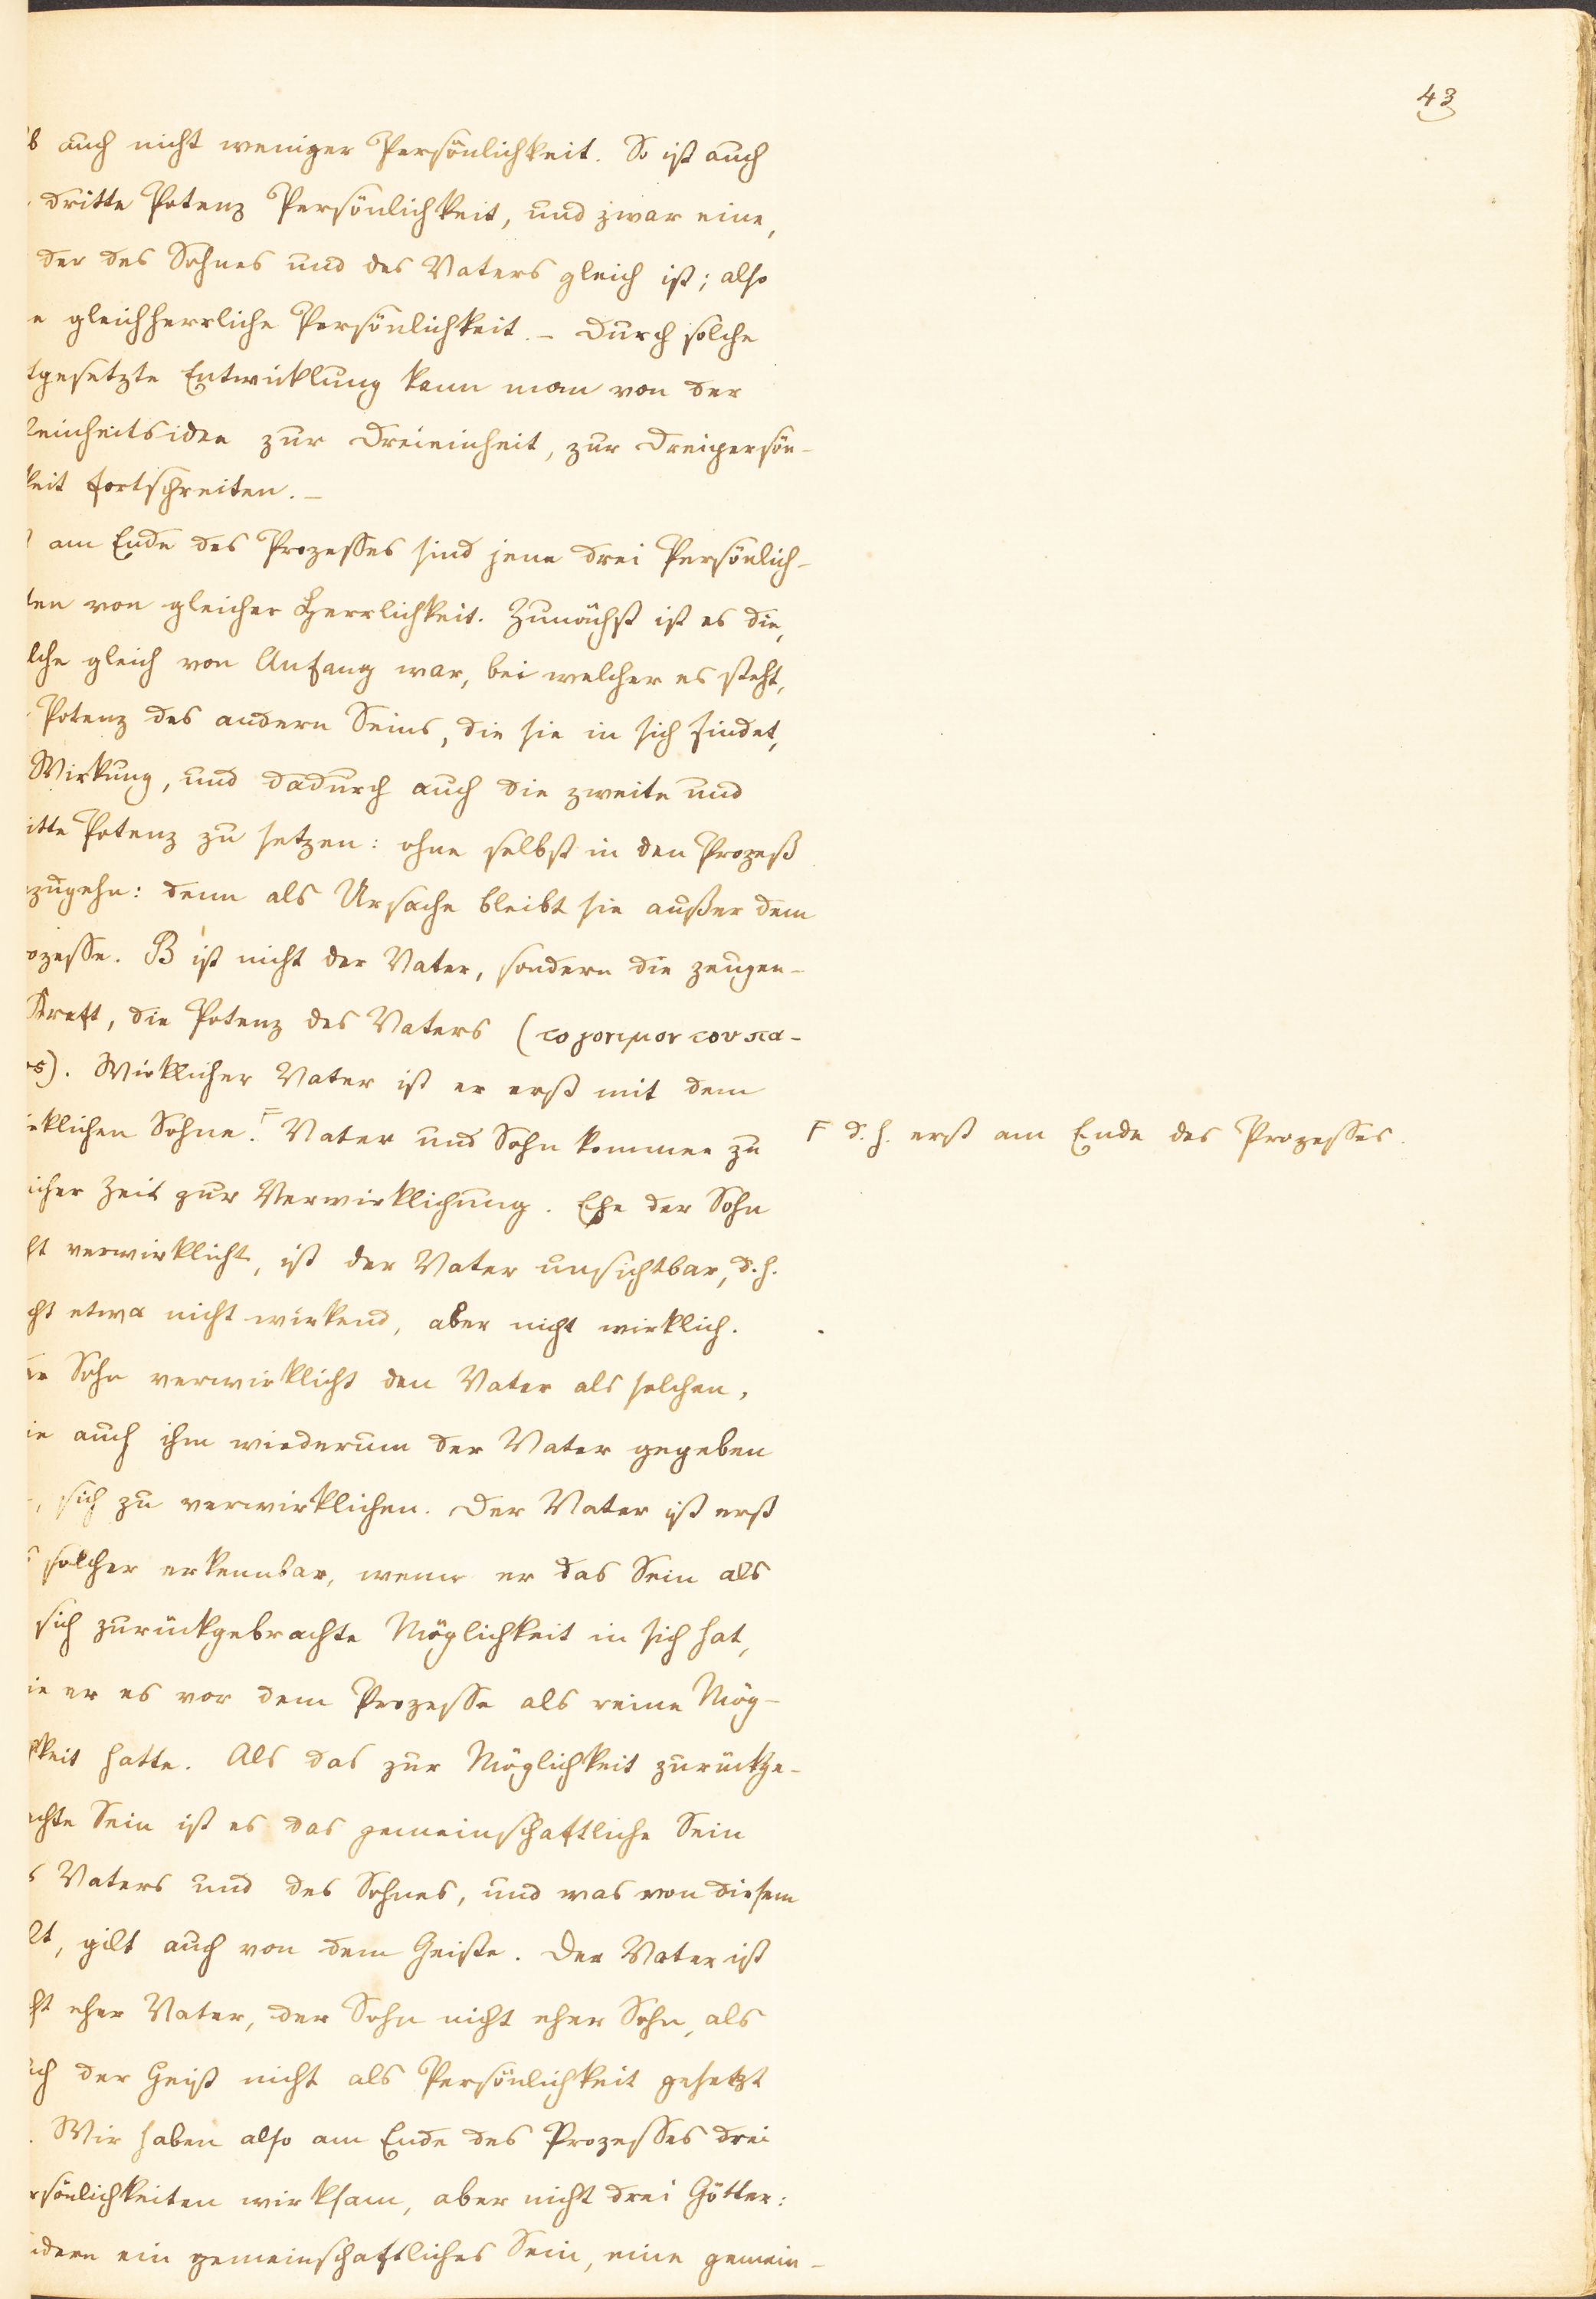 43
b auch nicht weniger Persönlichkeit. So ist auch
dritte Potenz Persönlichkeit, und zwar eine,
der des Sohnes und des Vaters gleich ist; also
e gleichherrliche Persönlichkeit. – Durch solche
tgesetzte Entwicklung kann man von der
leinheitsidee zur Dreieinheit, zur Dreipersön-
keit fortschreiten. –
am Ende des Prozesses sind jene drei Persönlich-
ten von gleicher Herrlichkeit. Zunächst ist es die,
lche gleich von Anfang war, bei welcher es steht,
Potenz des andern Seins, die sie in sich findet,
Wirkung, und dadurch auch die zweite und
itte Potenz zu setzen: ohne selbst in den Prozeß
zugehn: denn als Ursache bleibt sie außer dem
ozesse. B ist nicht der Vater, sondern die zeugen-
Kraft, die Potenz des Vaters (το γονιμον του πα-
ος). Wirklicher Vater ist er erst mit dem
irklichen Sohne. F Vater und Sohn kommen zu
F d. h. erst am Ende des Prozesses.
icher Zeit zur Verwirklichung. Ehe der Sohn
ht verwirklicht, ist der Vater unsichtbar, d. h.
cht etwa nicht wirkend, aber nicht wirklich.
er Sohn verwirklicht den Vater als solchen,
ie auch ihm wiederum der Vater gegeben
, sich zu verwirklichen. Der Vater ist erst
s solcher erkennbar, wenn er das Sein als
sich zurückgebrachte Möglichkeit in sich hat,
ie er es vor dem Prozesse als reine Mög-
hkeit hatte. Als das zur Möglichkeit zurückge-
achte Sein ist es das gemeinschaftliche Sein
s Vaters und des Sohnes, und was von diesem
lt, gilt auch von dem Geiste. Der Vater ist
ht eher Vater, der Sohn nicht eher Sohn, als
uch der Geist nicht als Persönlichkeit gesetzt
. Wir haben also am Ende des Prozesses drei
rsönlichkeiten wirksam, aber nicht drei Götter:
ndern ein gemeinschaftliches Sein, eine gemein-